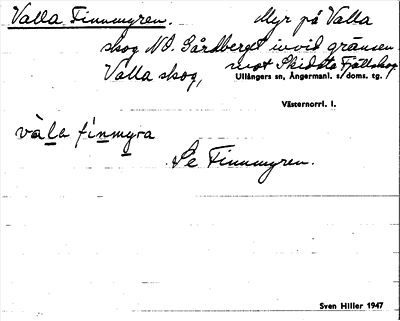 Valla Finnmyren. Myr på Valla
skog NO. Gårdberget invid gränsen
Valla skog, mot Skidsta Fjällskog
Ullångers sn, Ångermanl. s. doms. tg.
Västernorrl. l.
våla finmyra
Se Finnmyren.
Sven Hiller 1947